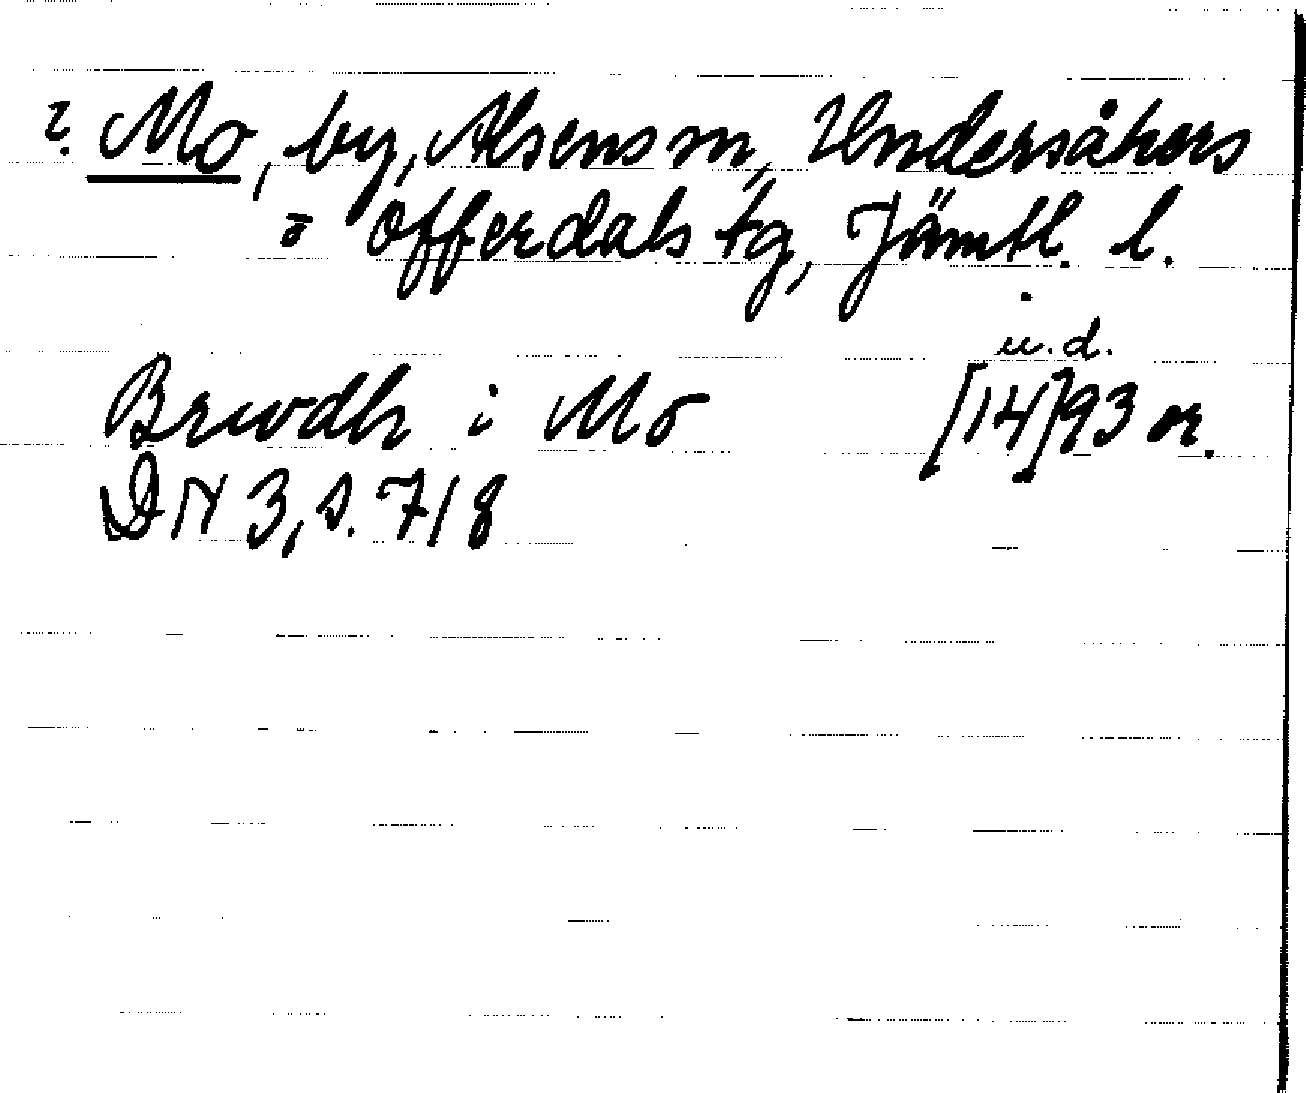 ?. Mo, by, Alsens sn, Undersåkers
o Offerdals tg, Jämtl. l.
u.d.
Brwdh i Mo [14]93 or.
DN 3, s. 718